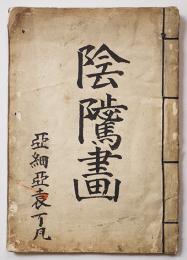 陰隲畫
亞細亞袁了凡